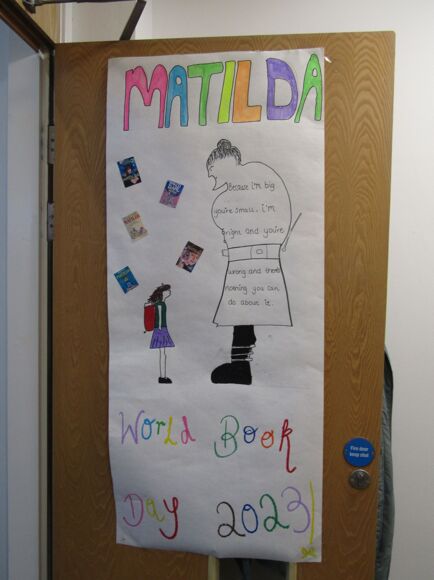 MATILDA
Because I'm big
you're small, I'm
right and you're
wrong and there
nothing you can
do about it.
World Book
Day 2023
Fire door
keep shut